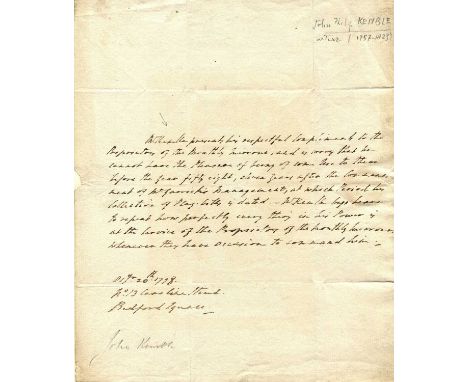 John Phil. KEMBLE
(1757-1823)
Mr Kemble presents his respectful Compliments to the
Proprietors of the Monthly Mirrour, and is sorry that he
cannot have the Pleasure of being of some Use to them
before the Year fifty eight, eleven years after the Commence-
ment of Mr Garrick's Management, at which Period his
Collection of Play-bills is dated. - Mr Kemble begs leave
to repeat how perfectly every thing in his Power is
at the Service of the Proprietors of the Monthly Mirrour,
whenever they have occasion to command him. -
26th 1798.
No 13 Caroline Street
Bedford Square
John Kemble